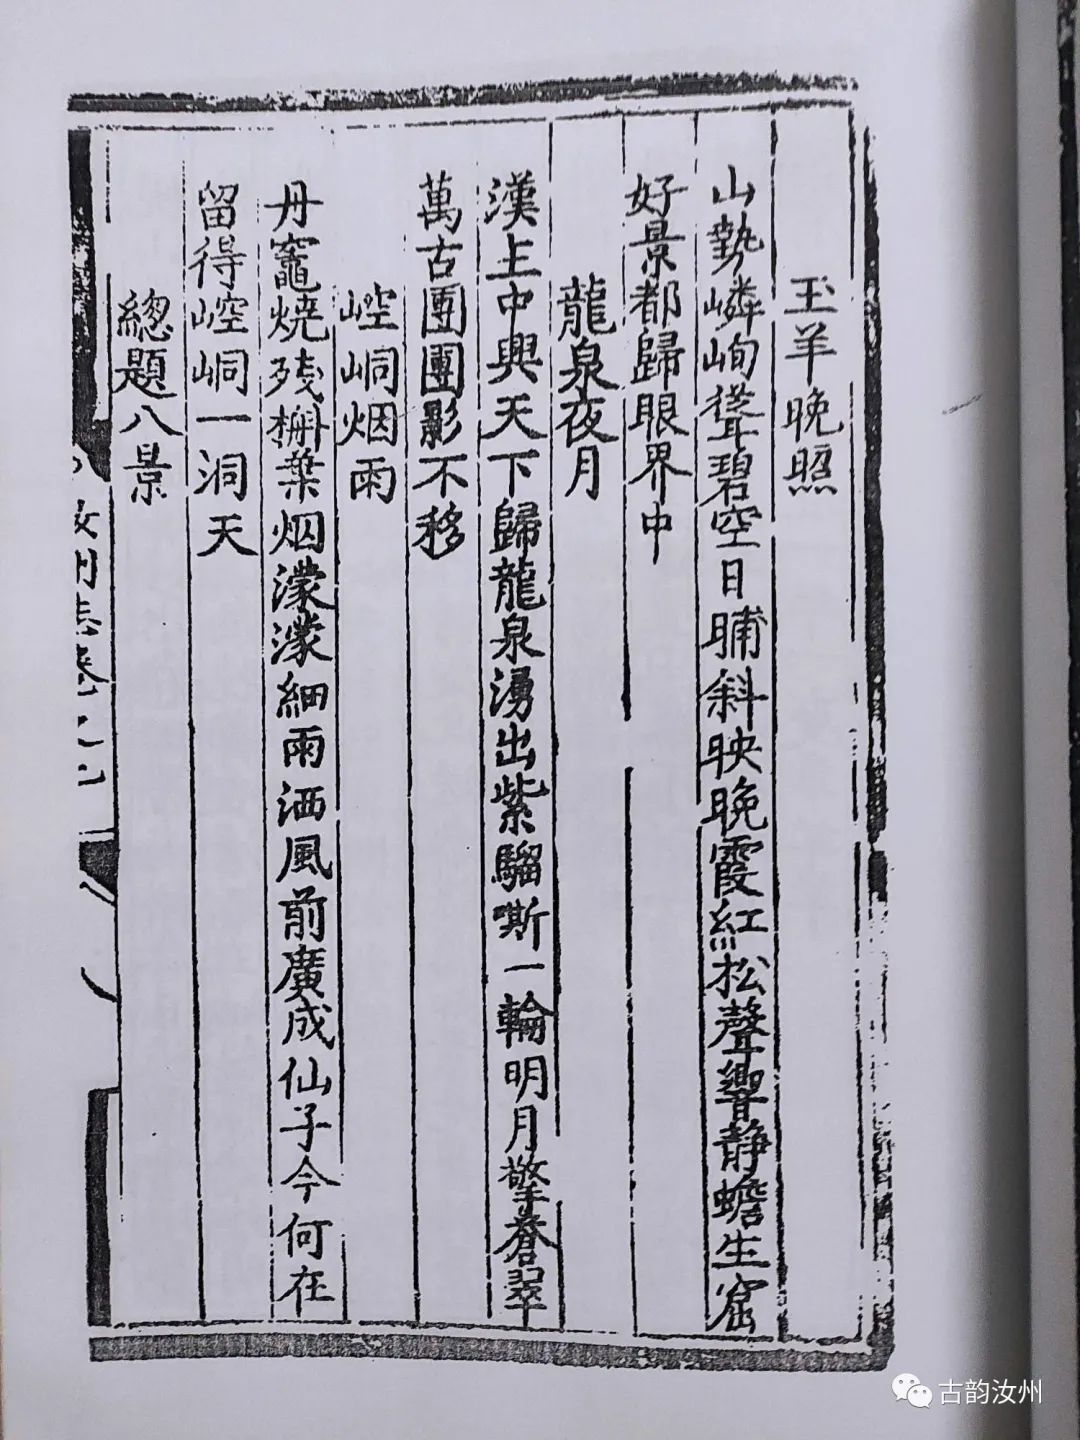 玉羊晚照
山勢嶙峋聳碧空日晡斜映晚霞紅松聲響靜蟾生窟
好景都歸眼界中
龍泉夜月
漢上中興天下歸龍泉湧出紫騮嘶一輪明月擎蒼翠
萬古團團影不移
崆峒烟雨
丹竈燒殘槲葉烟濛濛細雨洒風前廣成仙子今何在
留得崆峒一洞天
總題八景
汝州志卷之七
古韵汝州